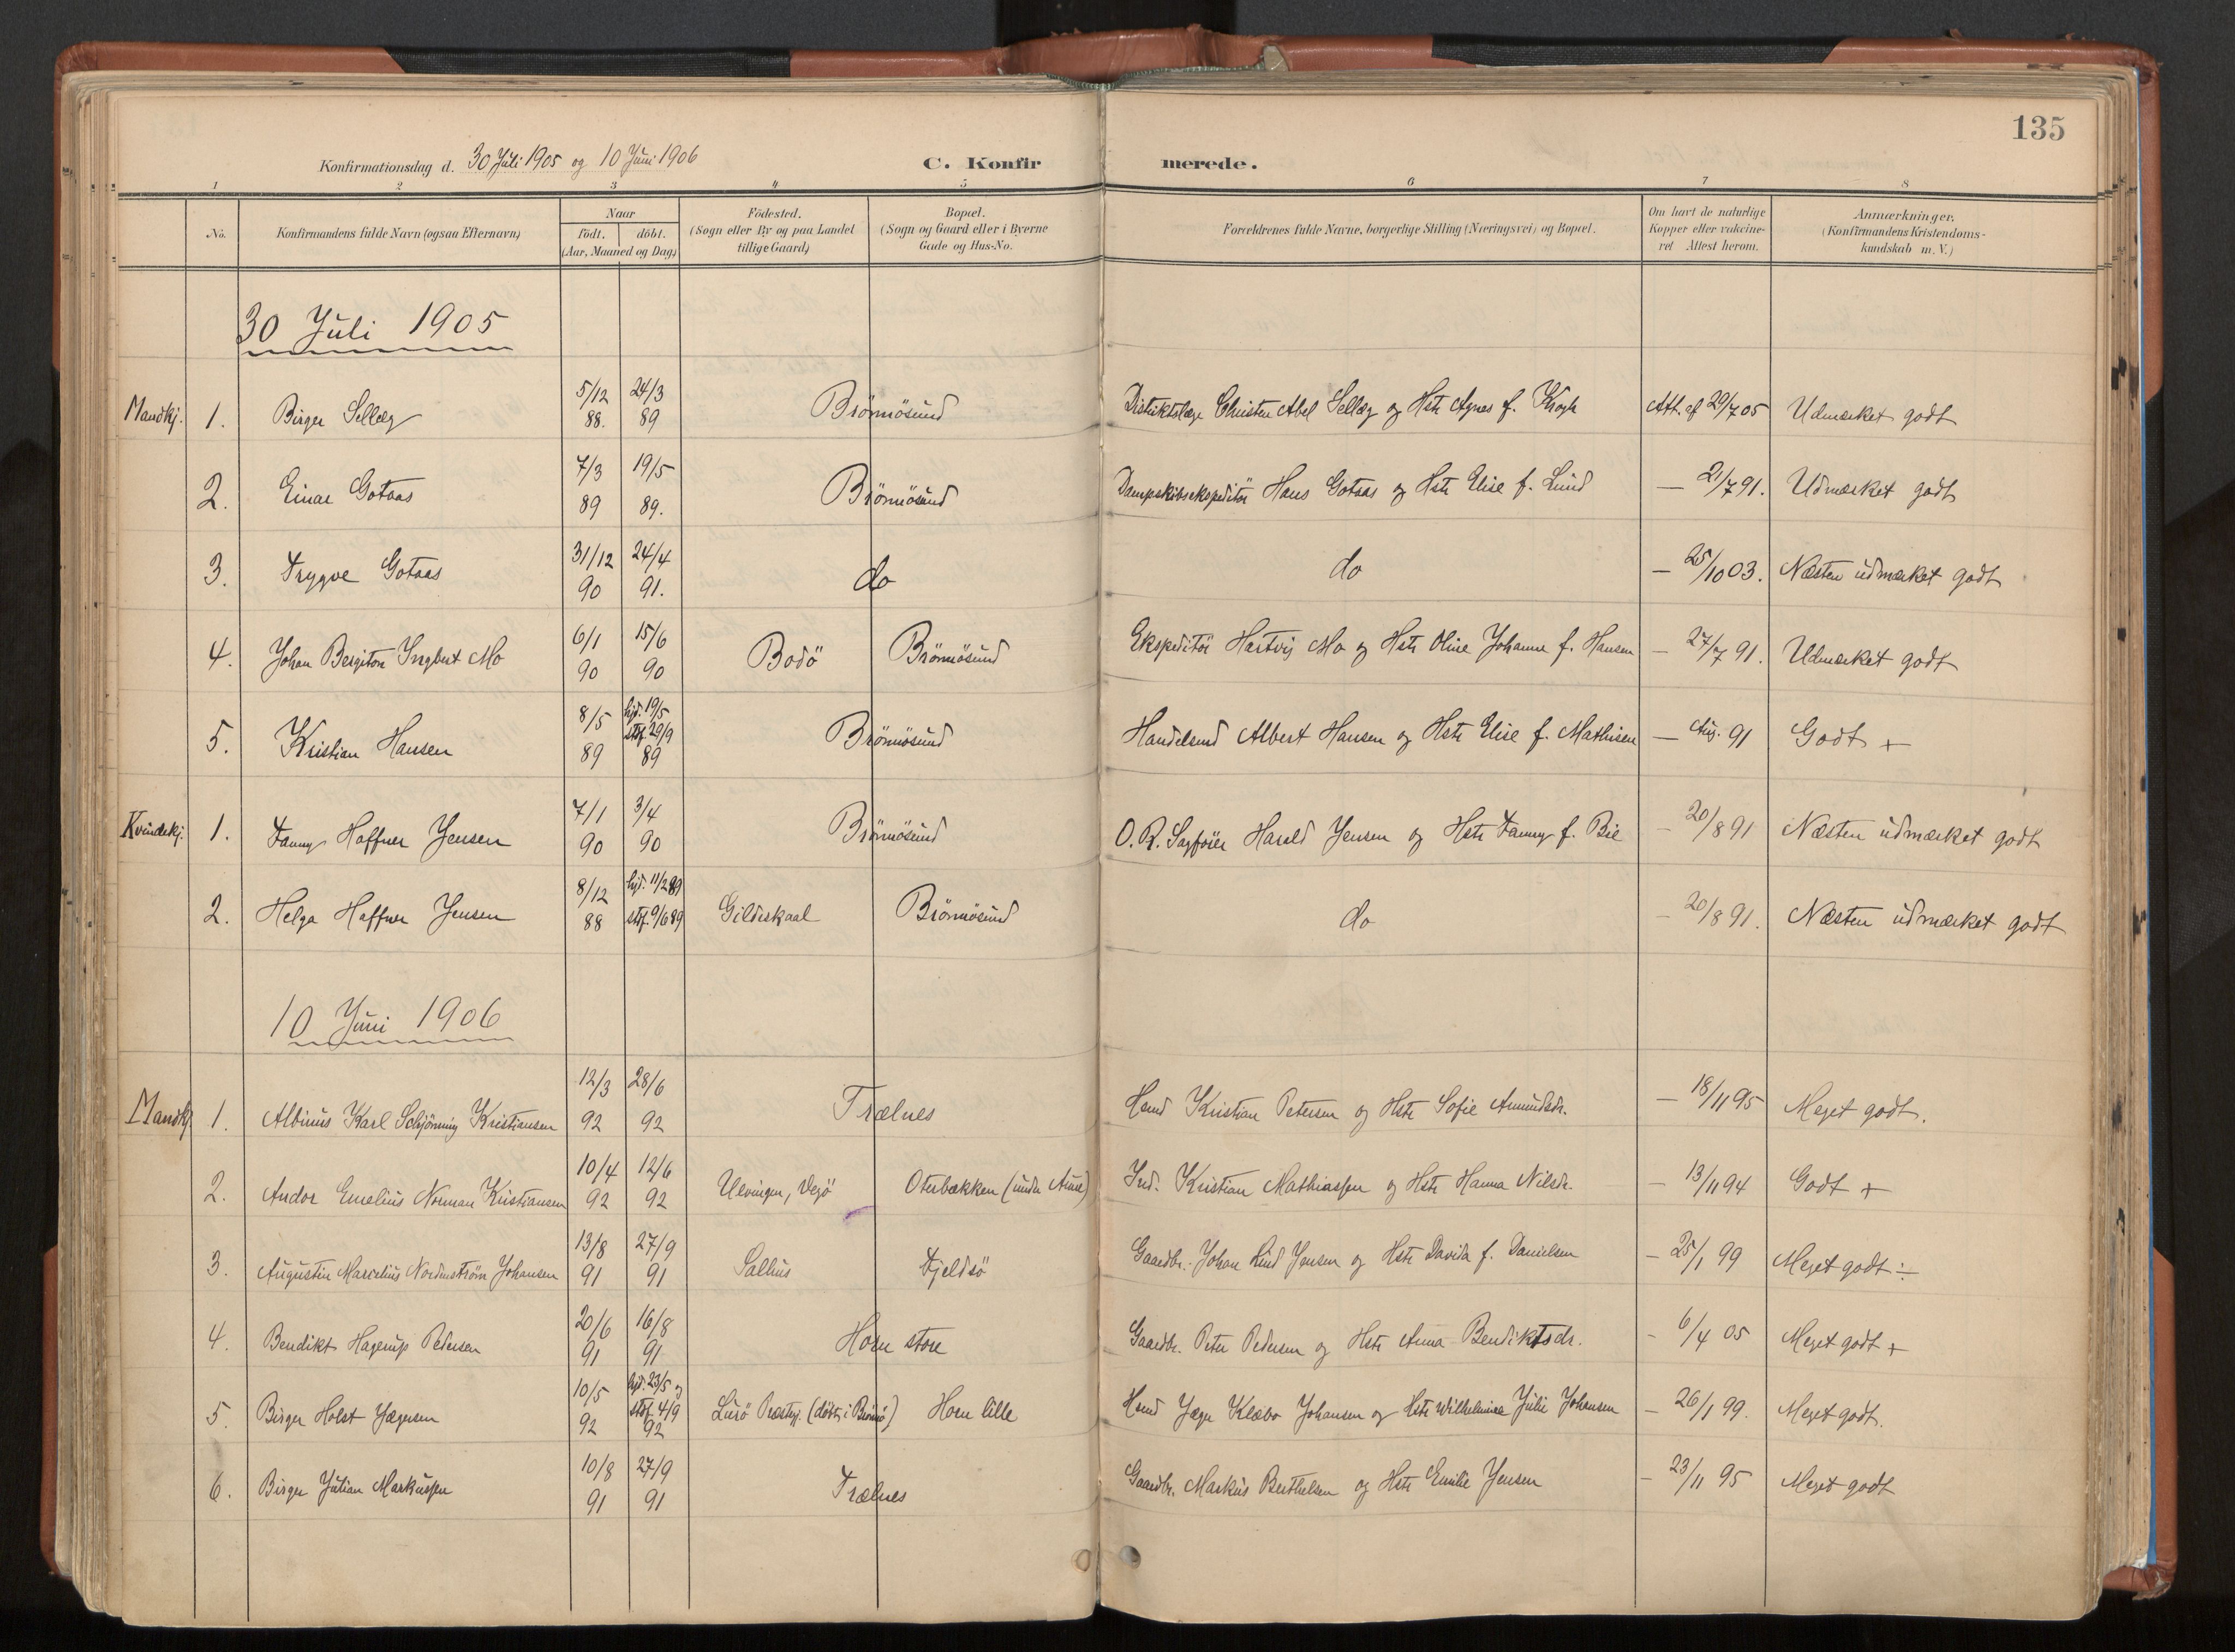 135
Konfirmationsdag d. 30 Juli 1905 og 10 Juni 1906 C. Konfirmerede.
1 2 3 4 5 6 7 8
No. Konfirmandens fulde Navn (ogsaa Efternavn) Naar födt. döbt. (Aar, Maaned og Dag) Födested. (Sogn eller By og paa Landet tillige Gaard) Bopæl. (Sogn og Gaard eller i Byerne Gade og Hus-No. Forældrenes fulde Navne, borgerlige Stilling (Næringsvei) og Bopæl. Om havt de naturlige Kopper eller vakcineret Attest herom. Anmærkninger. (Konfirmandens Kristendomskundskab m. V.)
30 Juli 1905
Mandkj. 1. Birger Sellæg 5/12 88. 24/3 89 Brönnösund Distriktslæge Christen Abel Sellæg og Hstr Agnes f. Krogh Att. af 29/7 05 Udmærket godt
2. Einar Gotaas 7/3 89 19/5 89. Brönnösund Dampskibsekspeditör Hans Gotaas og Hstr Elise f. Lund — 21/7 91. Udmærket godt
3. Trygve Gotaas 31/12 90 24/4 91. do do — 25/10 03. Næsten udmærket godt
4. Johan Bergiton Ingbert Mo 6/1 90 15/6 90 Bodö Brönnösund Ekspeditör Hartvig Mo og Hstr Oline Johanne f. Hansen — 27/7 91. Udmærket godt
5. Kristian Hansen 8/5 89 hjd. 19/5 stf. 29/9 89 Brönnösund Handelsmd Albert Hansen og Hstr Elise f. Mathisen — Aug. 91 Godt +
Kvindekj. 1. Fanny Haffner Jensen 7/1 90 3/4 90 Brönnösund O. R. Sagförer Harald Jensen og Hstr Fanny f. Bie — 20/8 91 Næsten udmærket godt
2. Helga Haffner Jensen 8/12 88 hjd. 11/2 89 stf. 9/6 89 Gildeskaal Brönnösund do — 20/8 91. Næsten udmærket godt
10 Juni 1906
Mandkj 1. Albinus Karl Schjönning Kristiansen 12/3 92 28/6 92 Trælnes Hsmd Kristian Petersen og Hstr Sofie Amundsdr. — 18/11 95 Meget godt.
2. Andor Emelius Norman Kristiansen 10/4 92 12/6 92 Ulvingen, Vegö Oterbækken (under Aune) Ind. Kristian Mathiassen og Hstr Hanna Nilsdr. — 13/11 94 Godt +
3. Augustin Marselius Nordenström Johansen 13/8 91 27/9 91 Salhus Fjeldsö Gaardbr. Johan Lind Jensen og Hstr Davida f. Danielsen — 25/1 99 Meget godt ÷
4. Bendikt Hagerup Pedersen 20/6 91 16/8 91 Horn store Gaardbr. Peter Pedersen og Hstr Anna Bendiktsdr. - 6/4 05 Meget godt +
5. Birger Holst Jægersen 10/5 92 hjd. 23/5 og stf. 4/9 92 Lurö Prestegj. (döbt i Brönnö) Horn lille Hsmd Jæger Klæbo Johansen og Hstr Wilhelmine Julie Johansen — 26/1 99. Meget godt.
6. Birger Julian Markussen 10/8 91 27/9 91 Trælnes Gaardbr. Markus Berthelsen og Hstr Emilie Jensen — 23/11 95 Meget godt